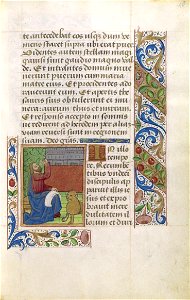 te antecedebat eos usq; dum ve
niens staret supra ubi erat puer
Videntes autem stellam magi
gauisi sunt gaudio magno val
de. Et intrantes domum inue
nerunt puerum cum maria
matre eius. Et procidentes ado
rauerunt eum. Et apertis the
sauris suis obtulerunt ei mu
nera: aurum thus et mirram.
Et responso accepto in somnis
ne redirent ad herodem: per aliam
viam reuersi sunt in regionem
suam. Deo gras.
IN illo
tempore.
Recumbe
tibus vnde
discipulis ap
paruit illis ie
sus et expro
brauit incre
dulitatem il
lorum et duri